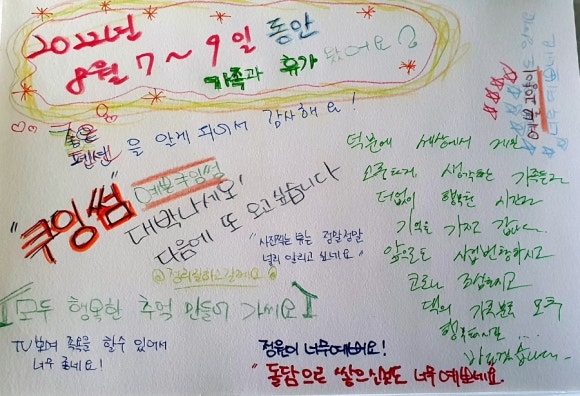 2022년
8월 7~9일 동안
가족과 휴가 왔어요
좋은
펜션을 알게 되어서 감사해요!
"쿠잉썸"
예쁜쿠잉썸
대박나세요!
다음에 또 오고싶습니다
"사진찍는 뷰는 정말정말
널리 알리고 싶네요"
덕분에 세상에서 제일
소중하게 생각하는 가족들과
더없이 행복한 시간과
기억을 가지고 갑니다
앞으로도 사업번창하시고
코로나 조심하시고
댁의 가족분들 모두
행복하시길...
바라겠습니다...
모두 행복한 추억 만들어 가세요
TV보며 족욕을 할수 있어서
너무 좋네요!
정원이 너무예뻐요!
"돌담으로 쌓으신것도 너무예쁘네요.